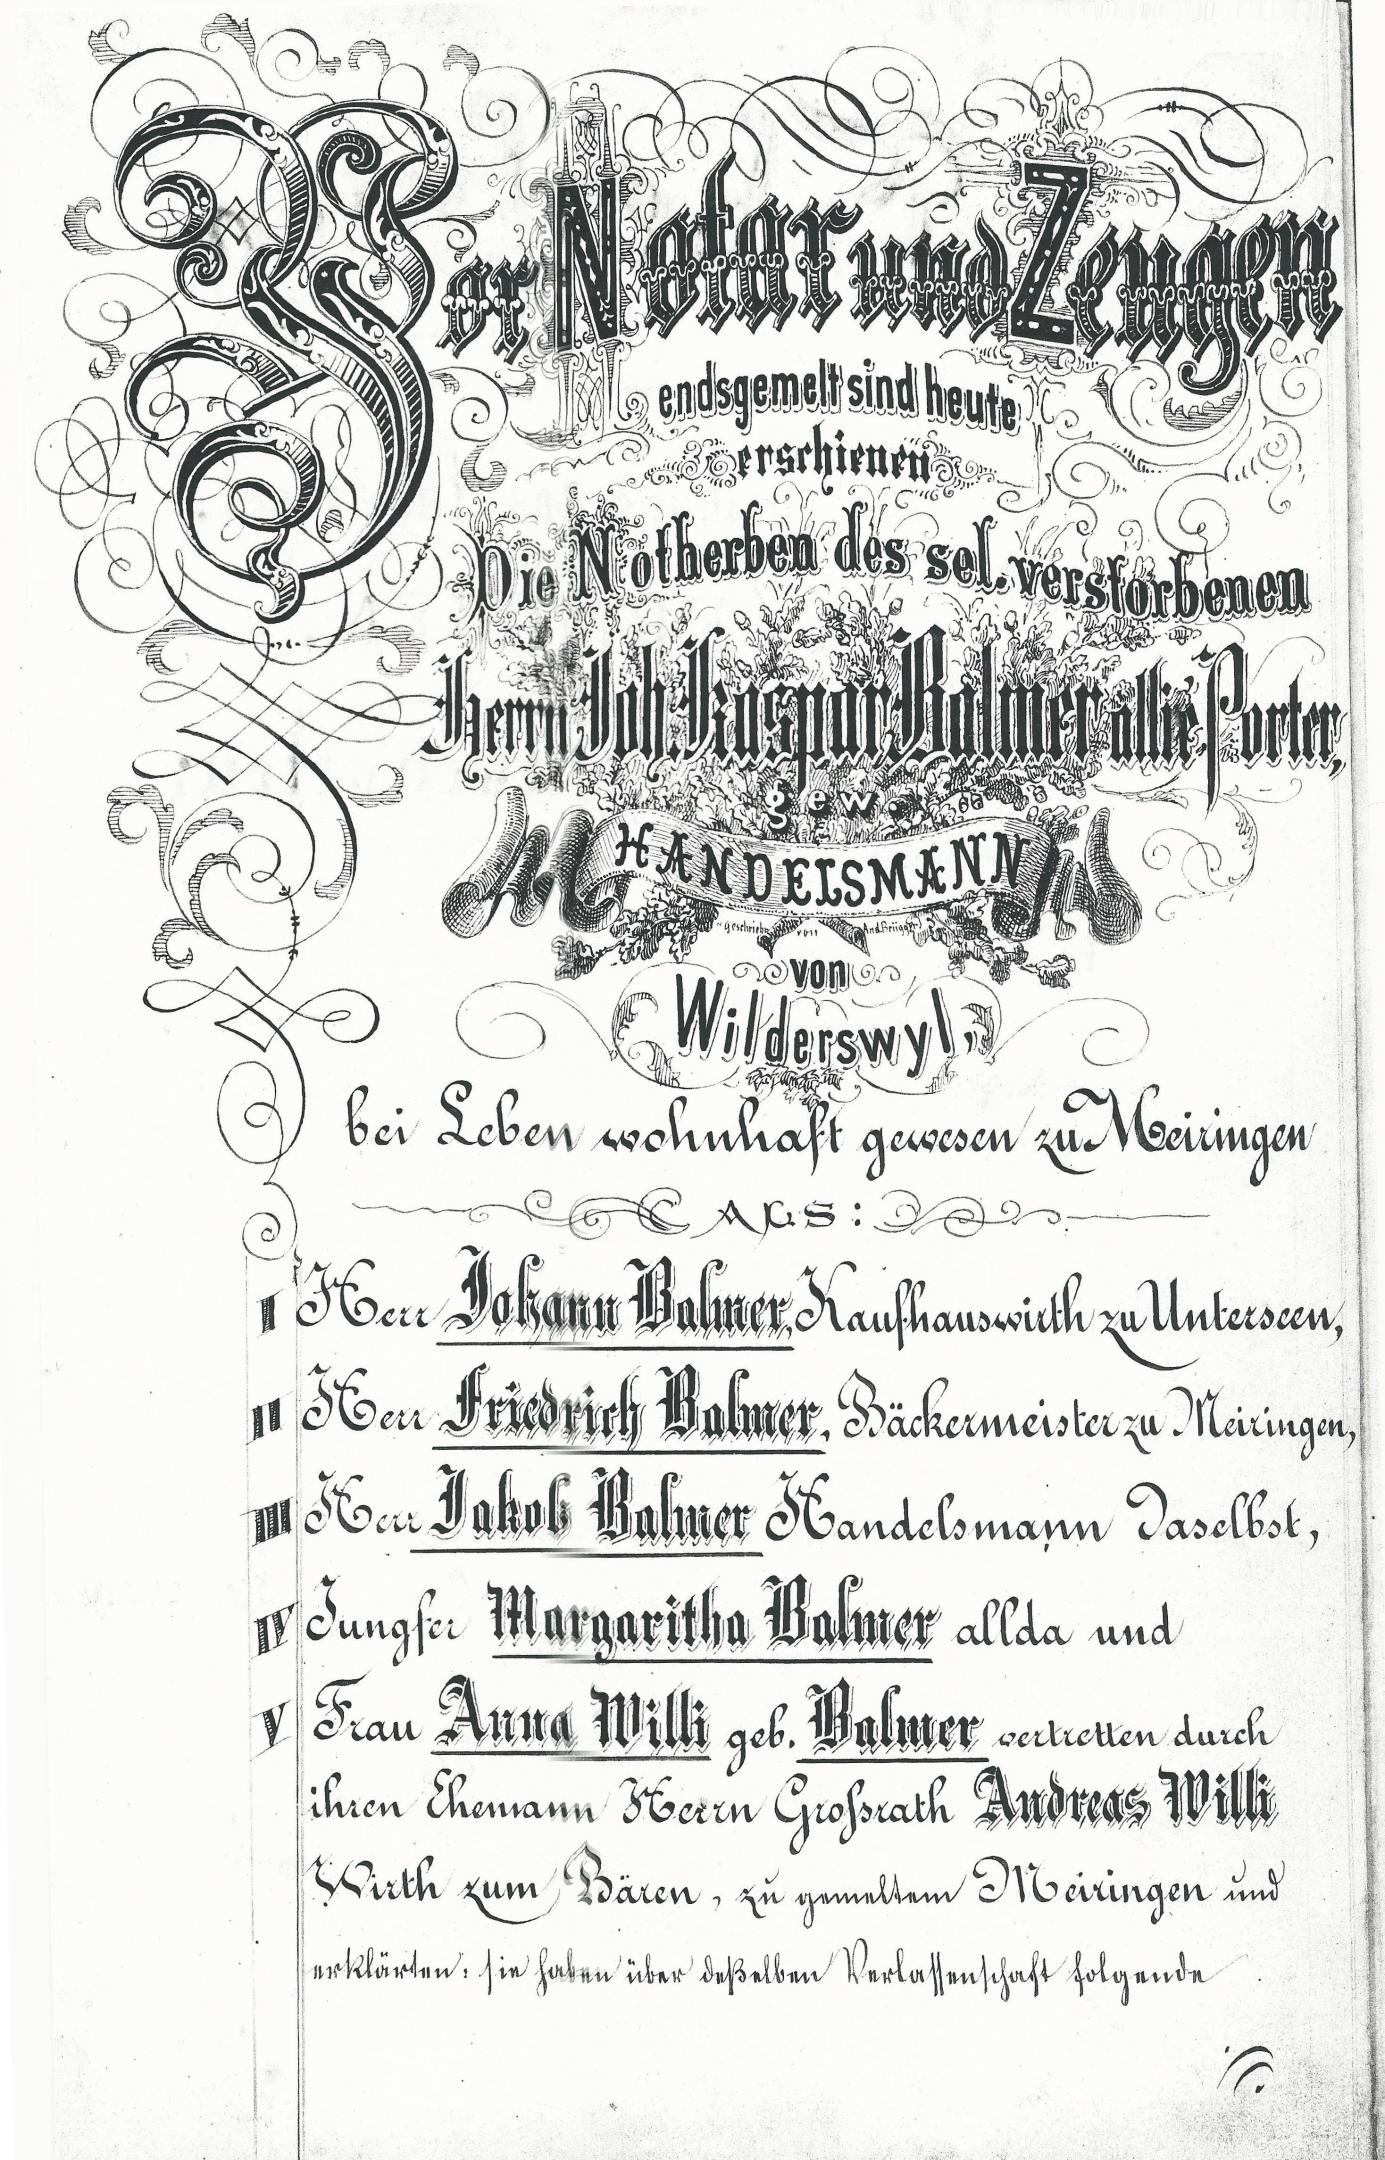 Vor Notar und Zeugen
endsgemelt sind heute
erschienen
Die Notherben des sel. verstorbenen
Herrn Joh. Kaspar Balmer allié Porter,
gew.
HANDELSMANN
Geschrieb. von And. Brügger
von
Wilderswyl,
bei Leben wohnhaft gewesen zu Meiringen
ALS:
I Herr Johann Balmer, Kaufhauswirth zu Unterseen,
II Herr Friedrich Balmer, Bäckermeister zu Meiringen,
III Herr Jakob Balmer Handelsmann daselbst,
IV Jungfer Margaritha Balmer allda und
V Frau Anna Willi geb. Balmer vertretten durch
ihren Ehemann Herrn Großrath Andreas Willi
Wirth zum Bären, zu gemeltem Meiringen und
erklärten: sie haben über deßelben Verlassenschaft folgende